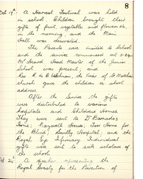 8
Oct 19th. A Harvest Festival was held
in school. Children brought their
gifts of fruit, vegetables and flowers
in the morning, and the Main
Hall was decorated.
The Parents were invited to School
and the service commenced at
Mr                Head Master of the Junior
school was present, and
Rev.                      the Vicar of St
church gave the children a short
address.
After the Service the gifts
was distributed to various
Hospitals and Childrens Homes
They were sent to Dr Barnardo's
Home,                 House,        Home for
the Blind,           Hospital, and the
Royal              Infirmary. Individual
gifts was sent to sick scholars of
the school.
Oct 20th. A speaker representing the
Royal Society for the Prevention of